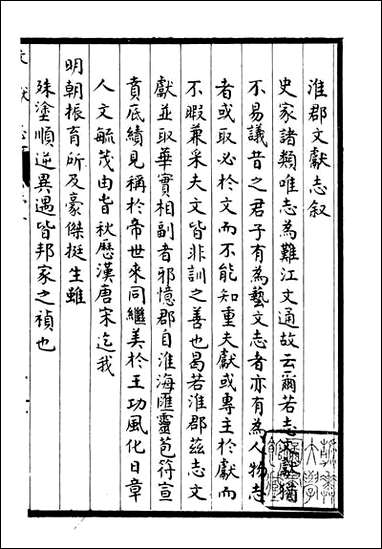 淮郡文獻志叙
史家諸類唯志為難江文通故云爾若志文獻猶
不易議昔之君子有為藝文志者亦有為人物志
者或取必於文而不能知重夫獻或專主於獻而
不暇兼采夫文皆非訓之善也曷若淮郡茲志文
獻並取華實相副者邪憶郡自淮海匯靈苞符宣
賁底績見稱於帝世來同繼美於王功風化日章
人文毓茂由昔秋歷漢唐宋迄我
明朝振育所及豪傑挺生雖
殊塗順逆異遇皆邦家之禎也